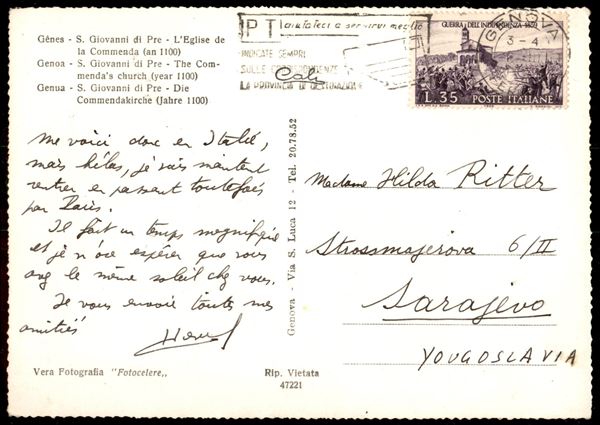 Gênes - S. Giovanni di Pre - L'Eglise de
la Commenda (an 1100)
Genoa - S. Giovanni di Pre - The Com-
menda's church (year 1100)
Genua - S. Giovanni di Pre - Die
Commendakirche (Jahre 1100)
PT aiutateci a servirvi meglio
INDICATE SEMPRE
SULLE CORRISPONDENZE
LA PROVINCIA DI DESTINAZIONE
GUERRA DELL'INDIPENDENZA 1859
L. 35 POSTE ITALIANE
GENOVA
3-4
me voici donc en Italie,
mais hélas, je vais maintenant
rentrer en passant toutefois
par Paris.
Il fait un temps magnifique
et je n'ose espérer que vous
avez le même soleil chez vous.
Je vous envoie toutes mes
amitiés
Madame Hilda Ritter
Strossmajerova 6/II
Sarajevo
YOUGOSLAVIA
Genova - Via S. Luca 12 - Tel. 20.78.52
Vera Fotografia "Fotocelere„
Rip. Vietata
47221